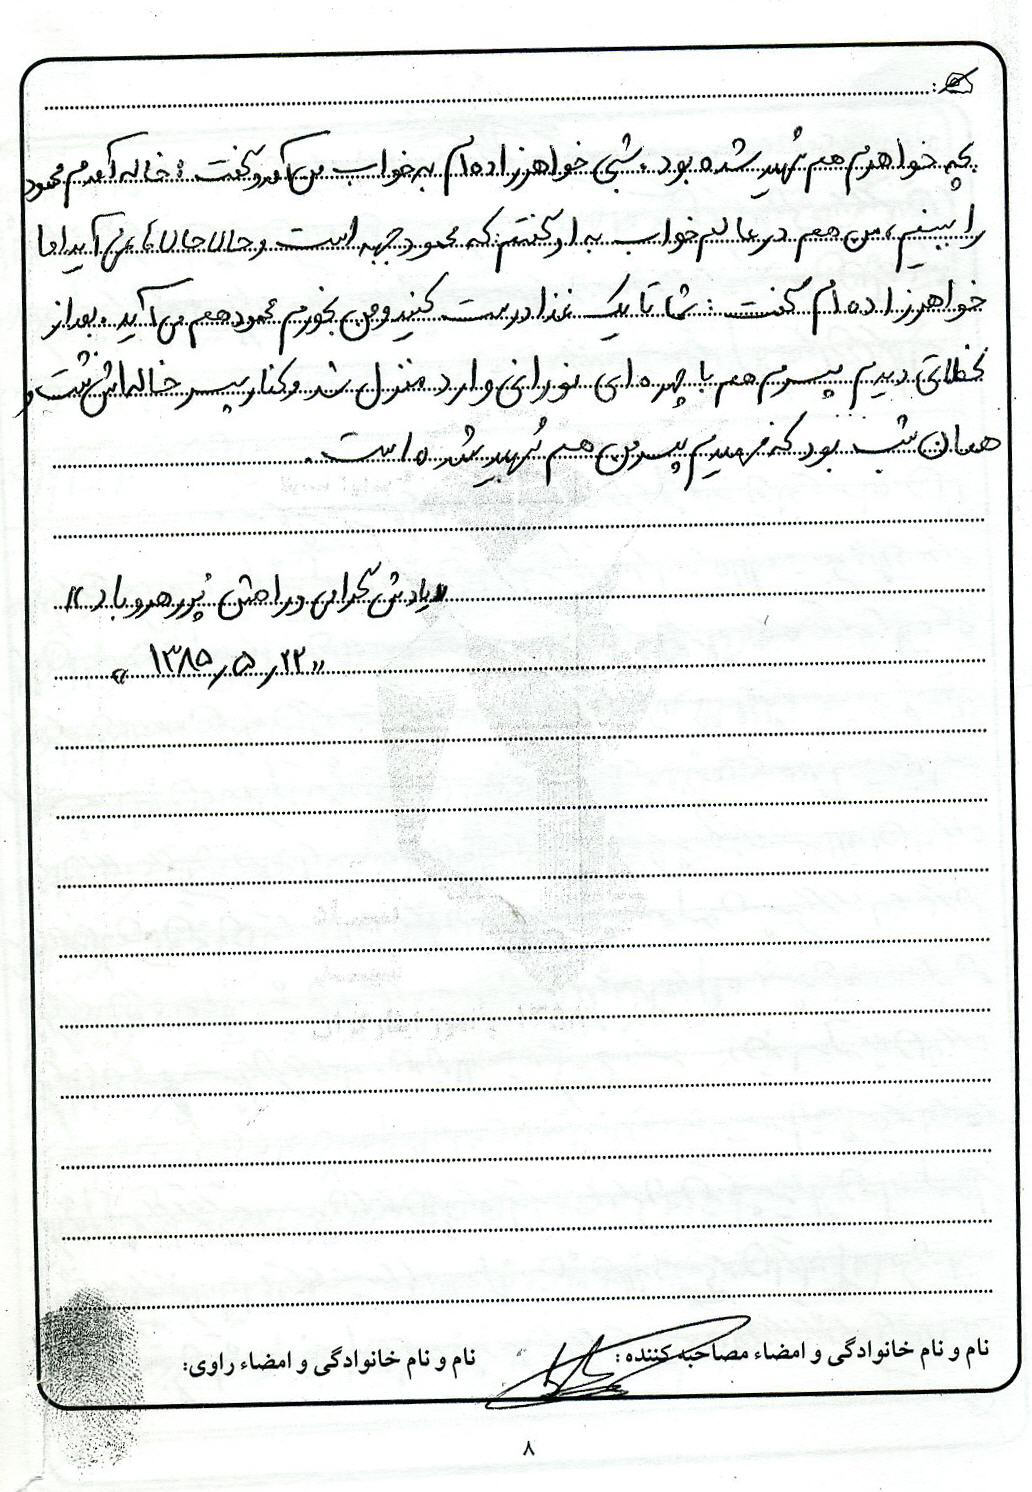 بچه خواهرم هم شهید شده بود. شبی خواهرزاده‌ام به خواب من آمد و گفت: خاله آمدم محمود
را ببینم، من هم در عالم خواب به او گفتم که محمود جبهه است و حالا حالاها نمی آید اما
خواهرزاده ام گفت: شما تا یک غذا درست کنید و من بخورم محمود هم می آید. بعد از
لحظاتی دیدم پسرم هم با چهره ای نورانی وارد منزل شد و کنار پسر خاله اش نشست و
همان شب بود که فهمیدم پسر من هم شهید شده است.
«یادش گرامی و راهش پر رهرو باد»
«۱۳۸۵٫۵٫۲۲»
نام و نام خانوادگی و امضاء مصاحبه کننده:
نام و نام خانوادگی و امضاء راوی:
۸